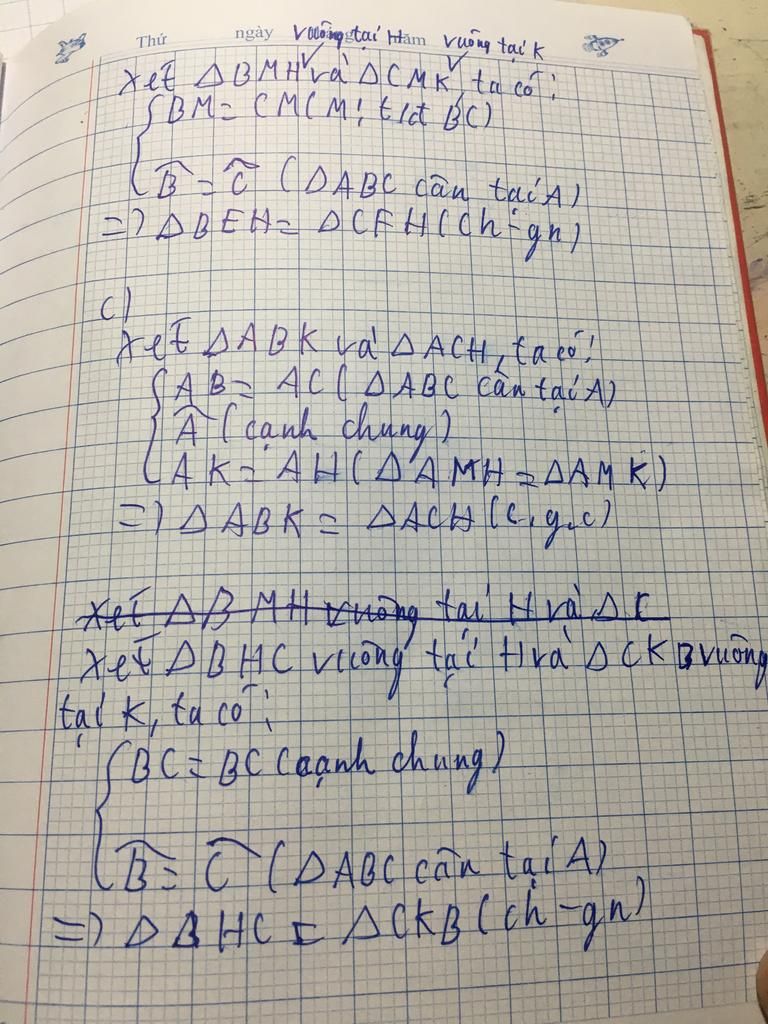 Thứ ngày vuông tại H năm vuông tại K
Xét ΔBMH và ΔCMK, ta có:
BM = CM (M: t/đ BC)
B̂ = Ĉ (ΔABC cân tại A)
=> ΔBEH = ΔCFH (ch-gn)
c)
Xét ΔABK và ΔACH, ta có:
AB = AC (ΔABC cân tại A)
Â (cạnh chung)
AK = AH (ΔAMH = ΔAMK)
=> ΔABK = ΔACH (c.g.c)
Xét ΔBMH vuông tại H và ΔC
Xét ΔBHC vuông tại H và ΔCKB vuông
tại K, ta có:
BC = BC (cạnh chung)
B̂ = Ĉ (ΔABC cân tại A)
=> ΔBHC = ΔCKB (ch-gn)